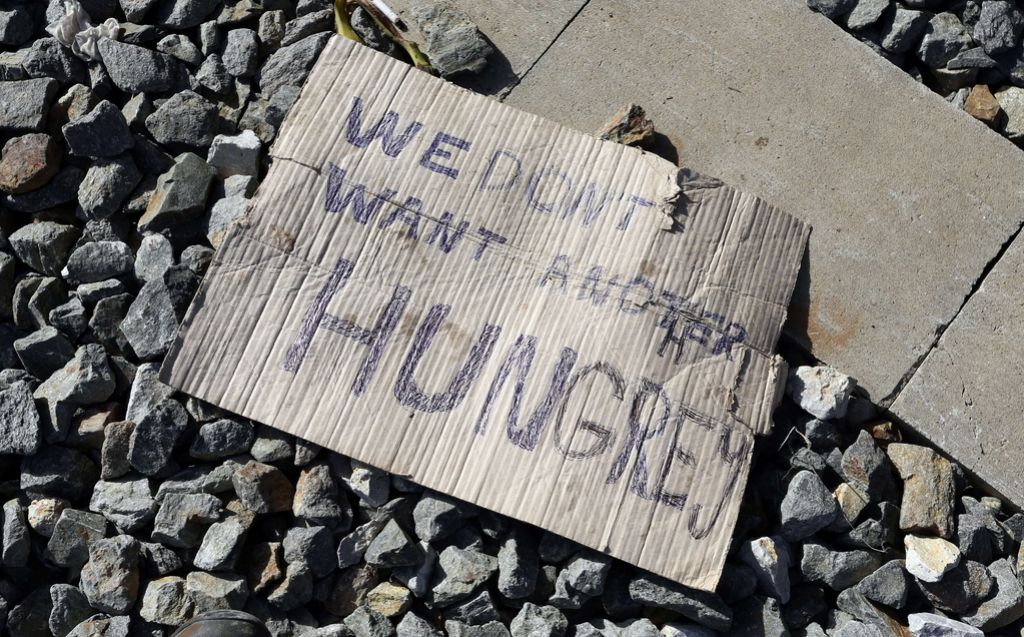 WE DONT
WANT ANOTHER
HUNGREY